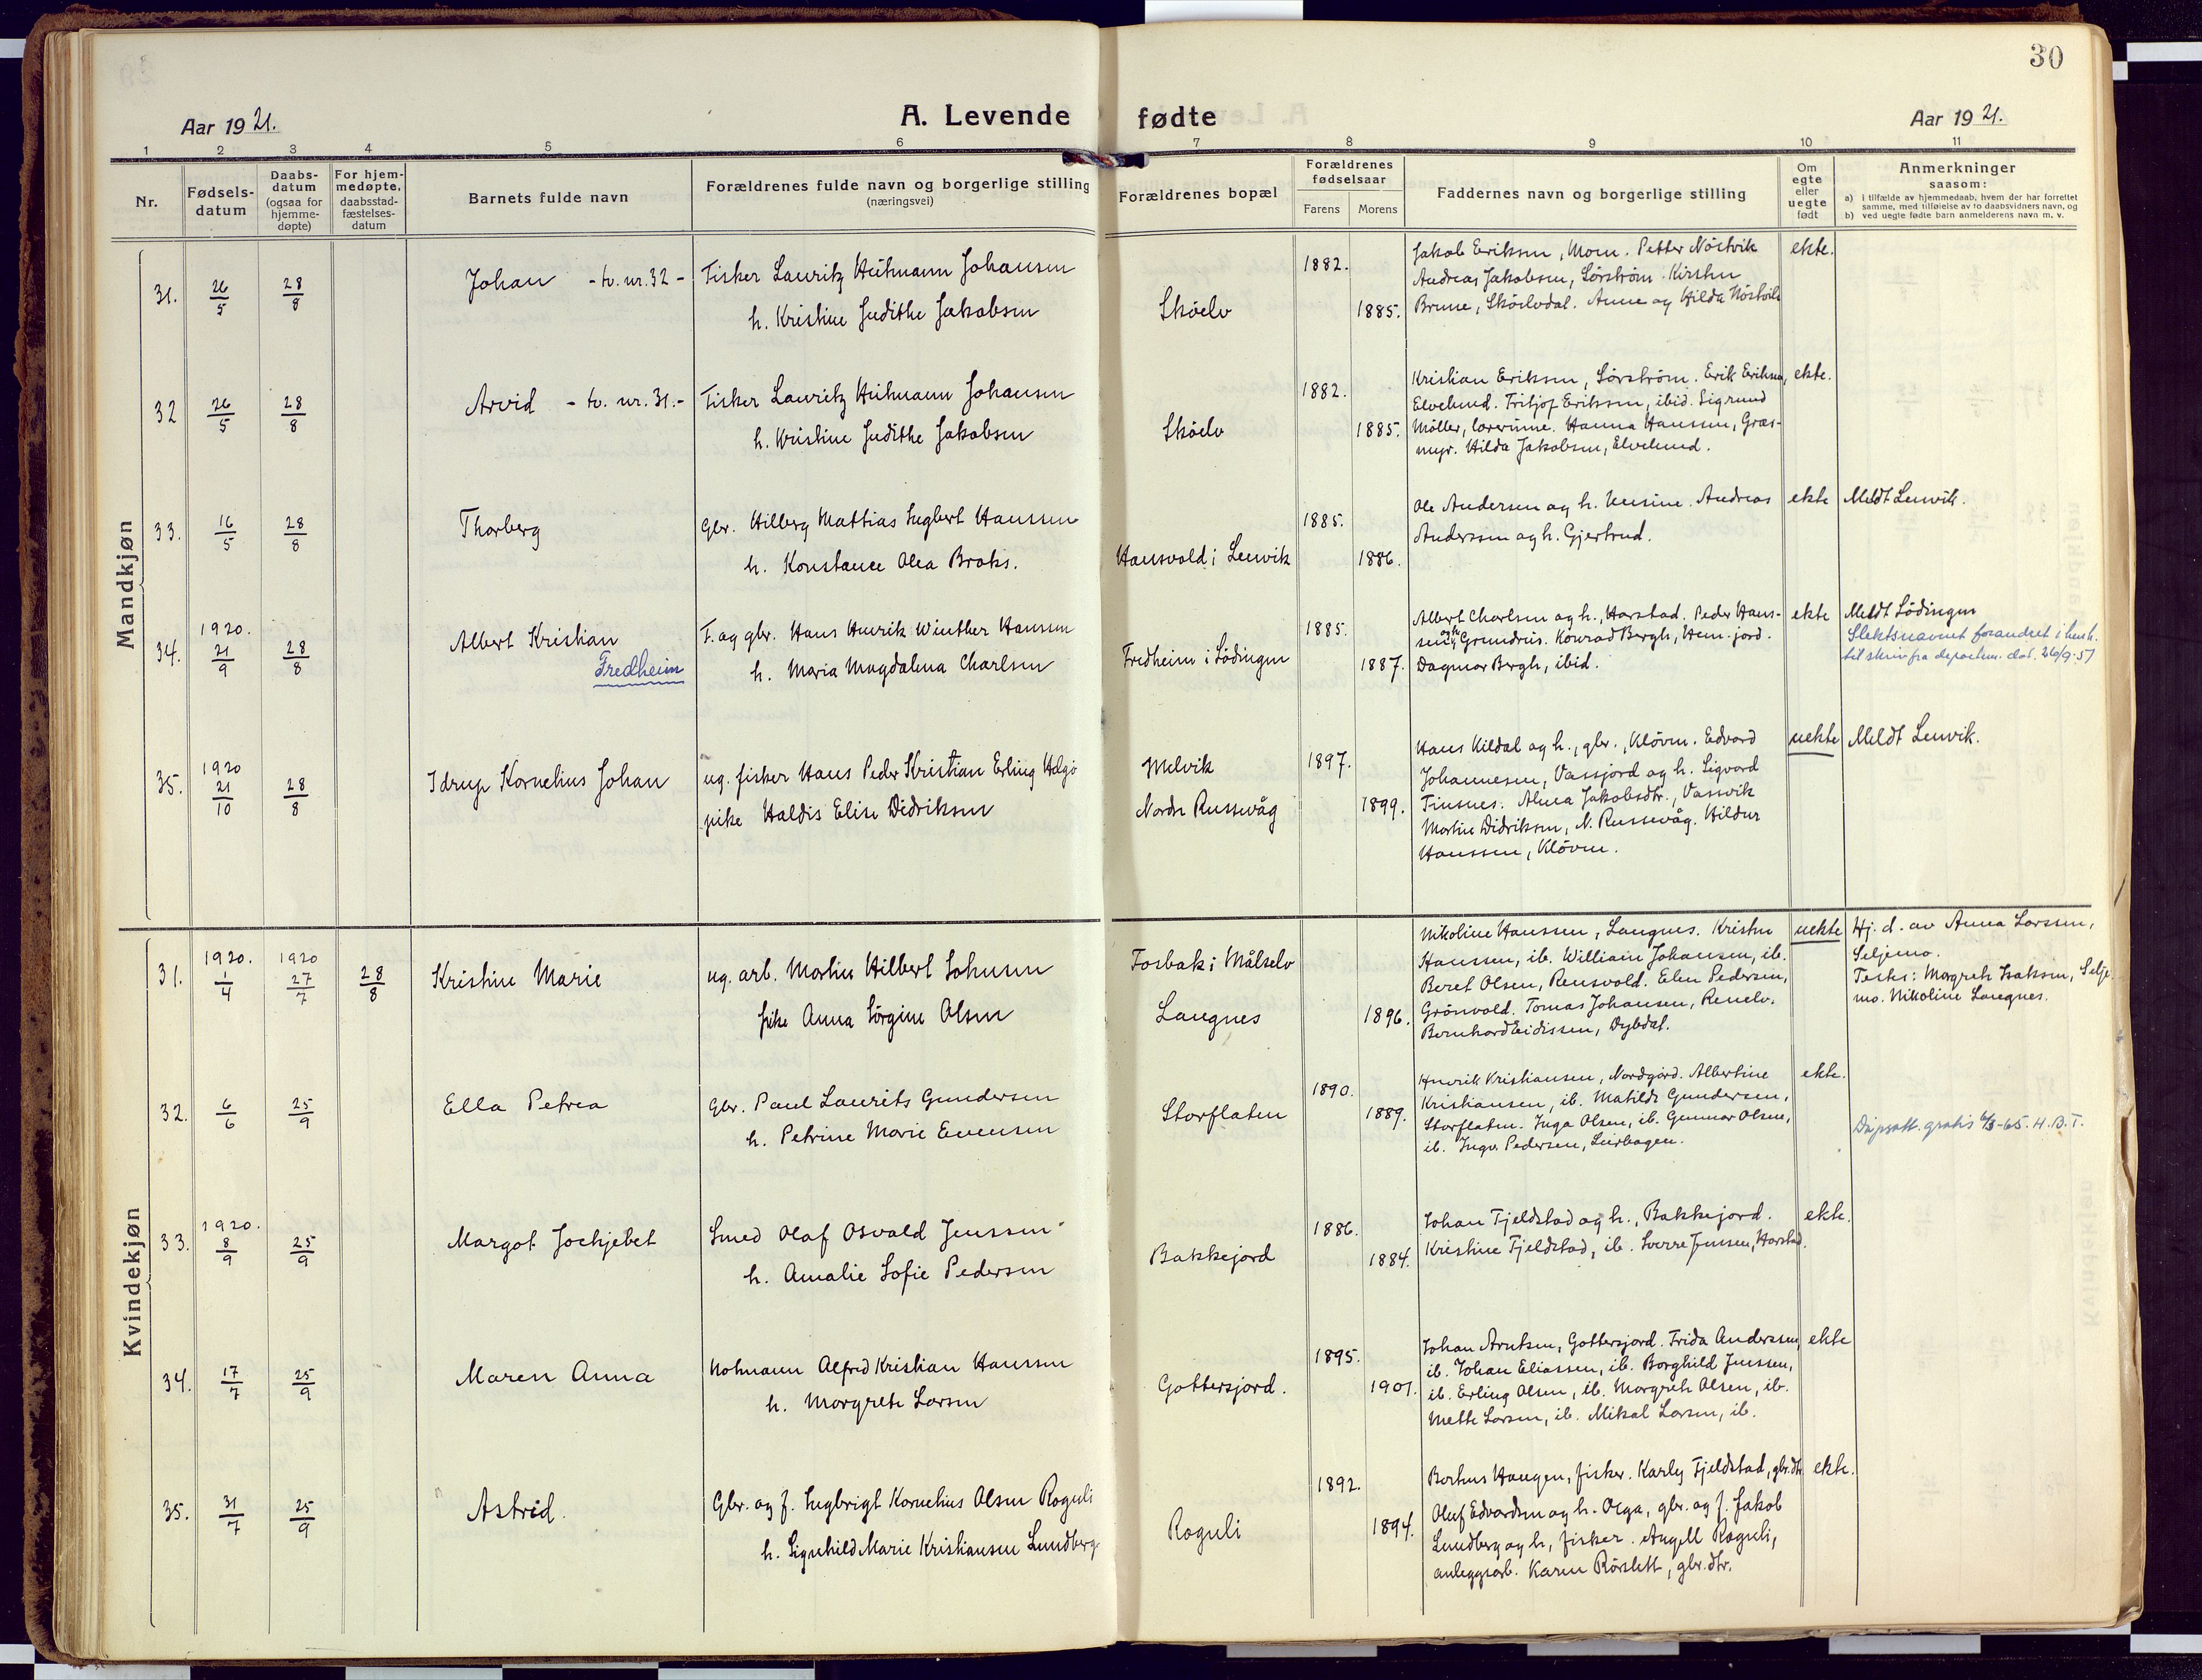 30
Aar 1921.
A. Levende fødte
Aar 1921.
1 2 3 4 5 6 7 8 9 10 11
Nr.
Fødsels-
datum
Daabs-
datum
(ogsaa for
hjemme-
døpte)
For hjem-
medøpte,
daabsstad-
fæstelses-
datum
Barnets fulde navn
Forældrenes fulde navn og borgerlige stilling
(næringsvei)
Forældrenes bopæl
Forældrenes
fødselsaar
Farens Morens
Faddernes navn og borgerlige stilling
Om
egte
eller
uegte
født
Anmerkninger
saasom:
a) i tilfælde av hjemmedaab, hvem der har forrettet
samme, med tilføielse av to daabsvidners navn, og
b) ved uegte fødte barn anmelderens navn m. v.
Mandkjøn
31. 26/5 28/8 Johan - tv. nr. 32 -
Fisker Lauritz Hitmann Johansen
h. Kristine Judithe Jakobsen
Sköelv
1882.
1885.
Jakob Eriksen, Moen. Petter Nöstvik
Andreas Jakobsen, Sörström. Kirsten
Brune, Sköelvdal. Anne og Hilda Nöstvik
ekte.
32 26/5 28/8 Arvid - tv. nr. 31. -
Fisker Lauritz Hitmann Johansen
h. Kristine Judithe Jakobsen
Sköelv
1882.
1885.
Kristian Eriksen, Sörström. Erik Eriksen,
Elvelund. Fritjof Eriksen, ibid. Sigrund
Möller, lærerinne. Hanna Hanssen, Græs-
myr. Hilda Jakobsen, Elvelund.
ekte.
33. 16/5 28/8 Thorberg
Gbr. Hilberg Mattias Ingbert Hanssen
h. Konstance Olea Broks.
Hansvold i Lenvik
1885.
1886.
Ole Andersen og h. Andreas
Anderssen og h. Gjertrud.
ekte
Meldt Lenvik.
34. 1920. 21/9 28/8 Albert Kristian
Fredheim
F. og gbr. Hans Henrik Winther Hanssen
h. Maria Magdalena Charlsen
Fredheim i Lödingen
1885.
1887.
Albert Charlsen og h., Harstad. Peder Hans-
sen og h, Konrad Bergh, jord.
Dagmar Bergh, ibid.
ekte
Meldt Lödingen
Slektsnavnet forandret i henh.
til skriv fra departem. dat. 26/9-51
35. 1920 21/10 28/8 Idrup Kornelius Johan
ug. fisker Hans Peder Kristian Erling Helgö
pike Haldis Elise Didriksen
Melvik
Nordre Russevåg
1897.
1899.
Hans Kildal og h., gbr., Klöven. Edvard
Johannesen, Vassjord og h. Sigvard
Finsnes. Alma Jakobsdtr., Vassvik
Martin Didriksen, N. Russevåg. Hildur
Hanssen, Klöven.
uekte
Meldt Lenvik.
Kvindekjøn
31. 1920. 1/4 1920 27/7 28/8 Kristine Marie
ug. arb. Martin Hilbert Johnsen
pike Anna Jörgine Olsen
Fosbak i Målselv
Langnes
1896.
Nikoline Hanssen, Langnes. Kristen
Hanssen, ib. William Johansen, ib.
Beret Olsen, Rensvold. Elen Pedersen,
Grönvold. Tomas Johansen, Renelv.
Bernhard Eidissen, Dybdal.
uekte
Hj. d. av Anna Larssen,
Seljemo.
Testes: Margrete Isaksen, Selje-
mo. Nikoline Langnes.
32. 6/6 25/9 Ella Petrea
Gbr. Paul Laurits Gundersen
h. Petrine Marie Evensen
Storflaten
1890.
1889.
Henrik Kristiansen, Nordgård. Albertine
Kristiansen, ib. Matilde Gundersen,
Storflaten. Inga Olsen, ib. Gunnar Olsen,
ib. Ingv. Pedersen, Leirbogen.
ekte.
Dåpsatt. gratis 6/3-65. H.B.T.
33. 1920. 8/9 25/9 Margot Jochjebet
Smed Olaf Osvald Jenssen
h. Amalie Sofie Pedersen
Bakkejord
1886.
1884.
Johan Fjeldstad og h., Bakkejord.
Kristine Fjeldstad, ib. Sverre Jenssen, Harstad.
ekte.
34. 17/7 25/9 Maren Anna
Notmann Alfred Kristian Hanssen
h. Margrete Larsen
Gottersjord.
1895.
1901.
Johan Arntsen, Gottersjord. Frida Anderssen,
ib. Johan Eliassen, ib. Borghild Jenssen,
ib. Erling Olsen, ib. Margrete Olsen, ib.
Mette Larsen, ib. Mikal Larsen, ib.
ekte
35. 31/7 25/9 Astrid.
Gbr. og f. Ingbrigt Kornelius Olsen Roguli
h. Signhild Marie Kristiansen Lundberg
Roguli
1892.
1894.
Bertus Haugen, fisker. Karly Fjeldstad, gbr.dtr.
Oluf Edvardsen og h. Olga, gbr. og f. Jakob
Lundberg og h, fisker. Angell Roguli,
anleggsarb. Karen Rörslett, gbr.dtr.
ekte.